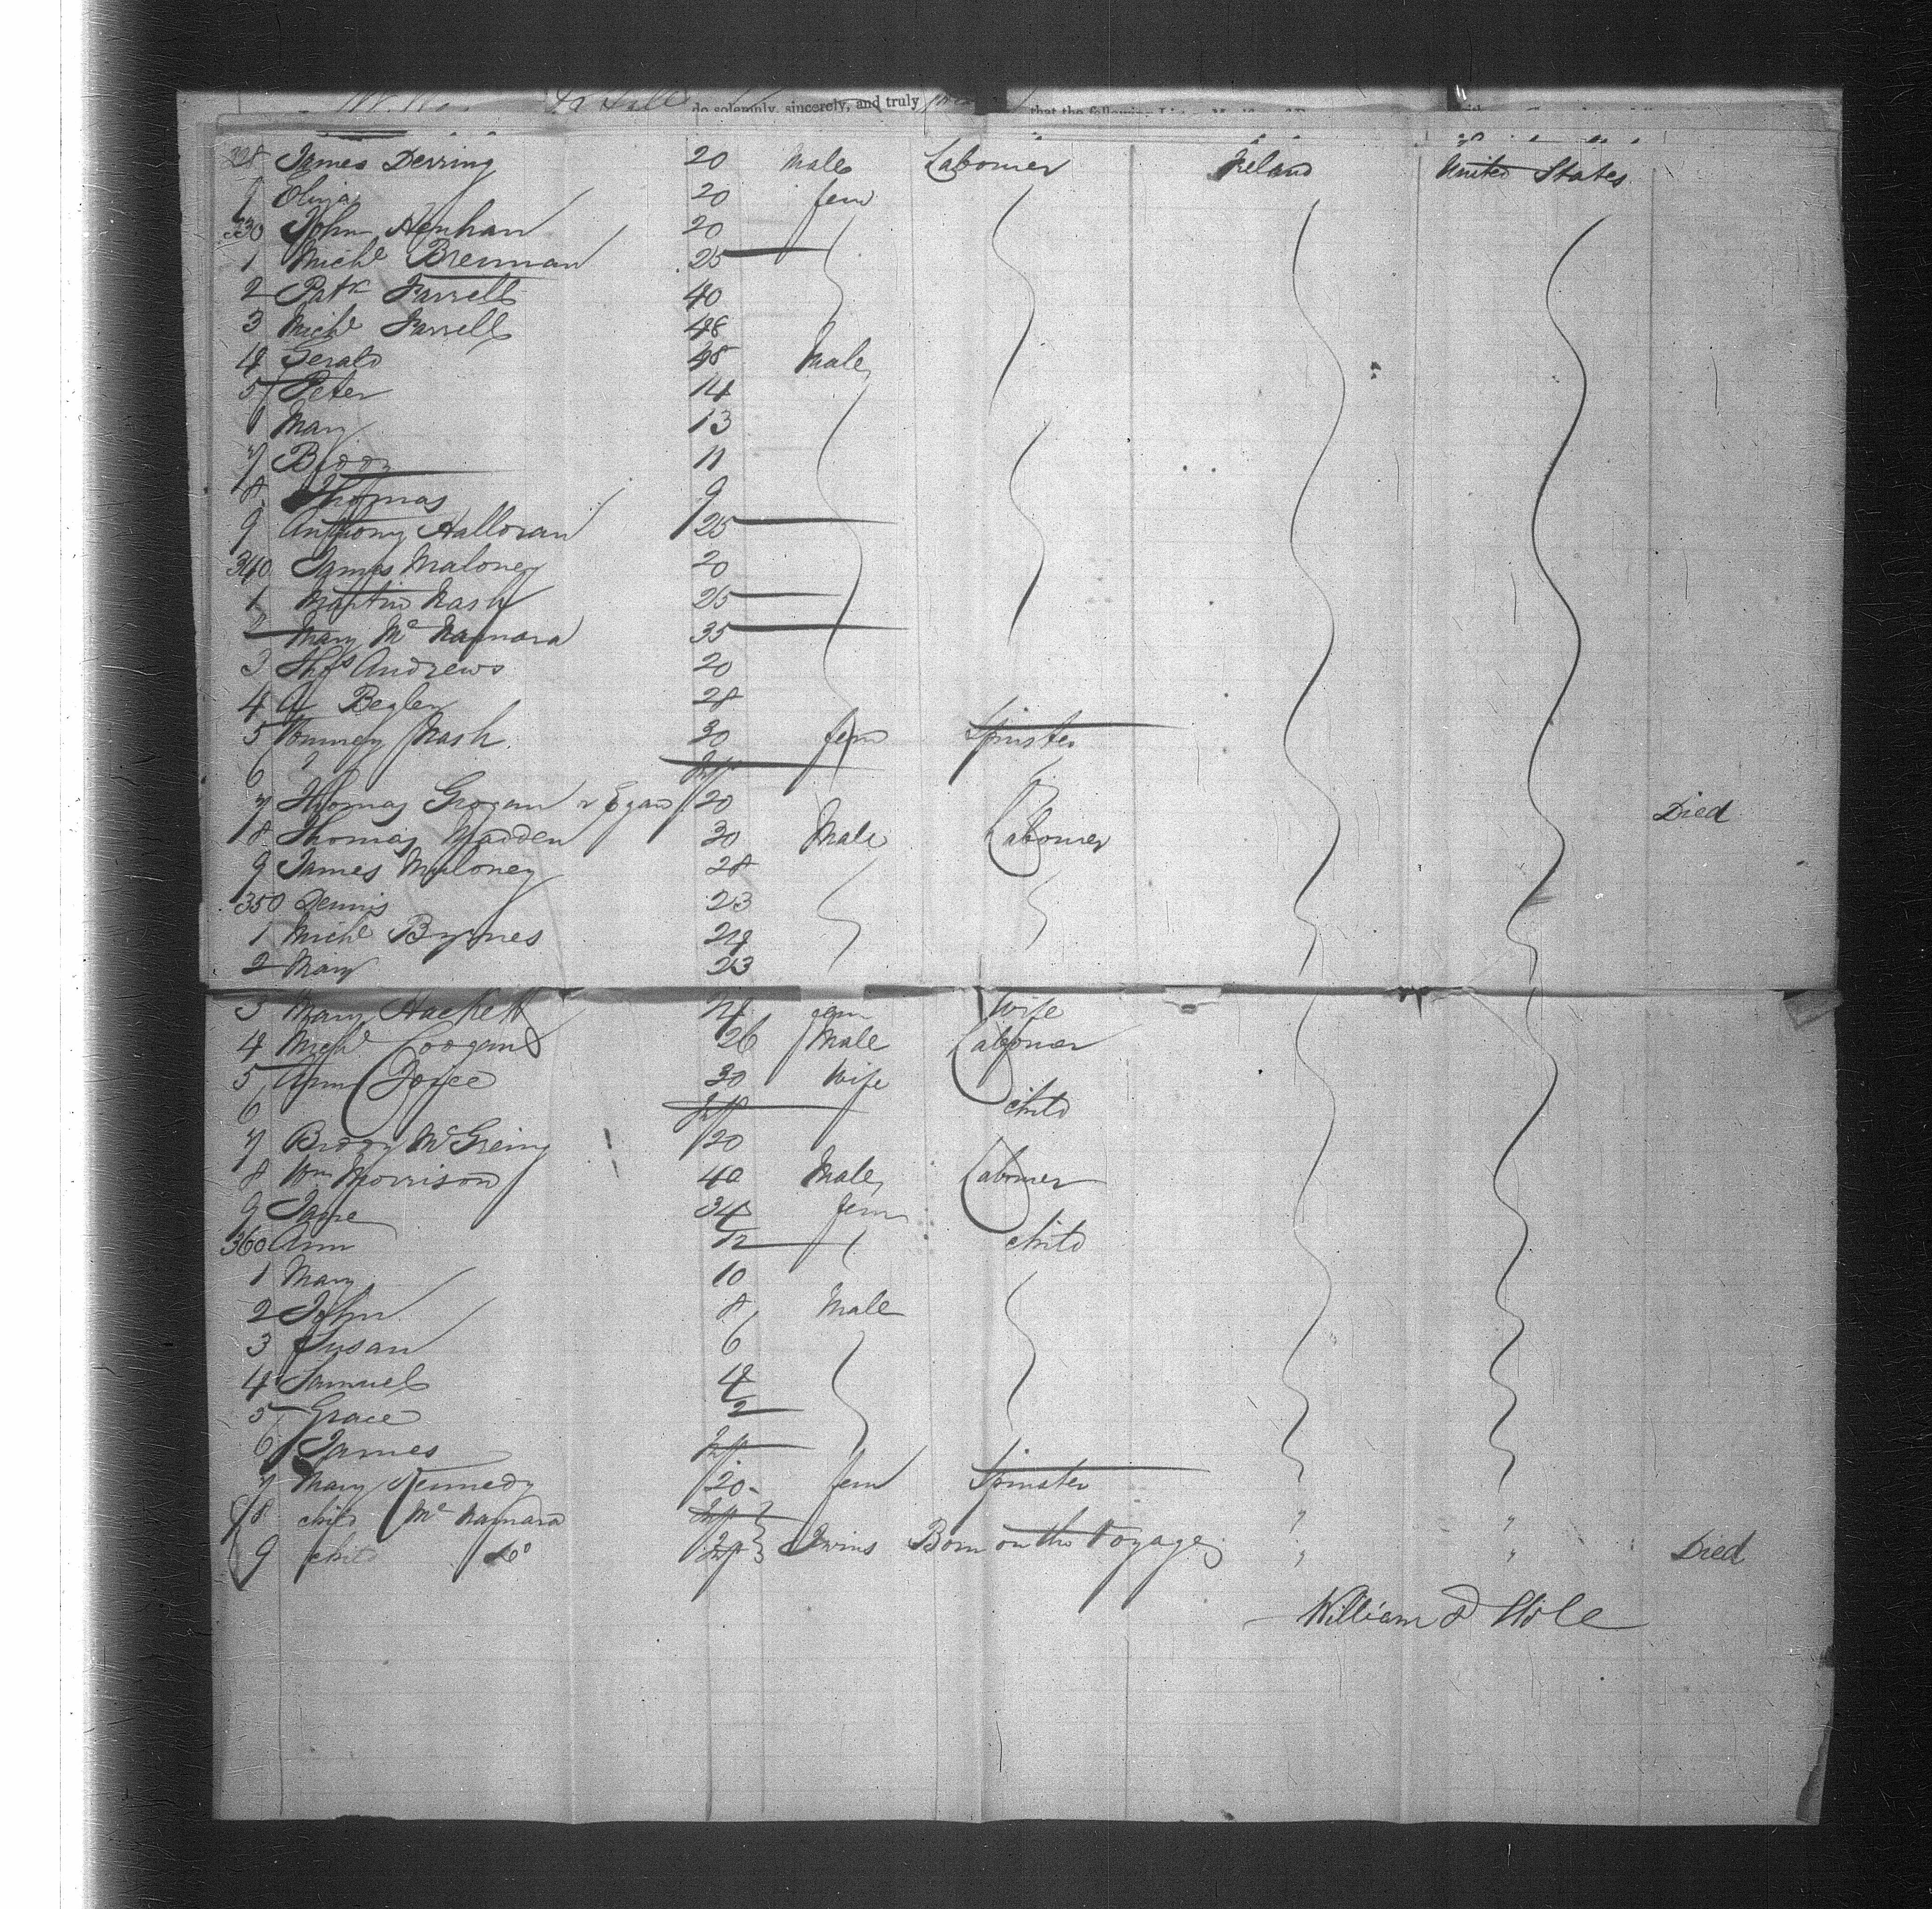 do solemnly, sincerely, and truly that the following List
328 James Derring 20 Male Labourer Ireland United States
9 Eliza 20 fem
330 John Henhan 20
1 Michl Brennan 25
2 Patk Farrell 40
3 Michl Farrell 48
4 Gerald 48 Male
5 Peter 14
6 Mary 13
7 Biddy 11
8 Thomas 9
9 Anthony Halloran 25
340 James Maloney 20
1 Martin Nash 25
2 Mary Mc Namara 35
3 Thos Andrews 20
4 Begley 28
5 Nash 30 fem Spinster
6 " Inft
7 Thomas Grogan or Egan 20 Died
8 Thomas Madden 30 Male Labourer
9 James Muloney 28
350 Dennis 23
1 Michl Byrnes 24
2 Mary 23
3 Mary Hackett 24 fem Wife
4 Michl Coogan 26 Male Labourer
5 Ann Joyce 30 Wife
6 Inft child
7 Biddy Mc Greiny 20
8 Wm Morrison 40 Male Labourer
9 Jane 34 fem
360 Ann 12 child
1 Mary 10
2 John 8 Male
3 Susan 6
4 Samuel 4
5 Grace 2
6 James Inft
7 Mary Kennedy 20 fem Spinster
8 child Mc Namara Inft " "
9 child Do Inft Twins Born on the Voyage " " Died
William D Hole